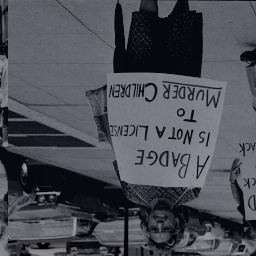 A BADGE
IS NOT A LICENSE
TO
MURDER CHILDREN